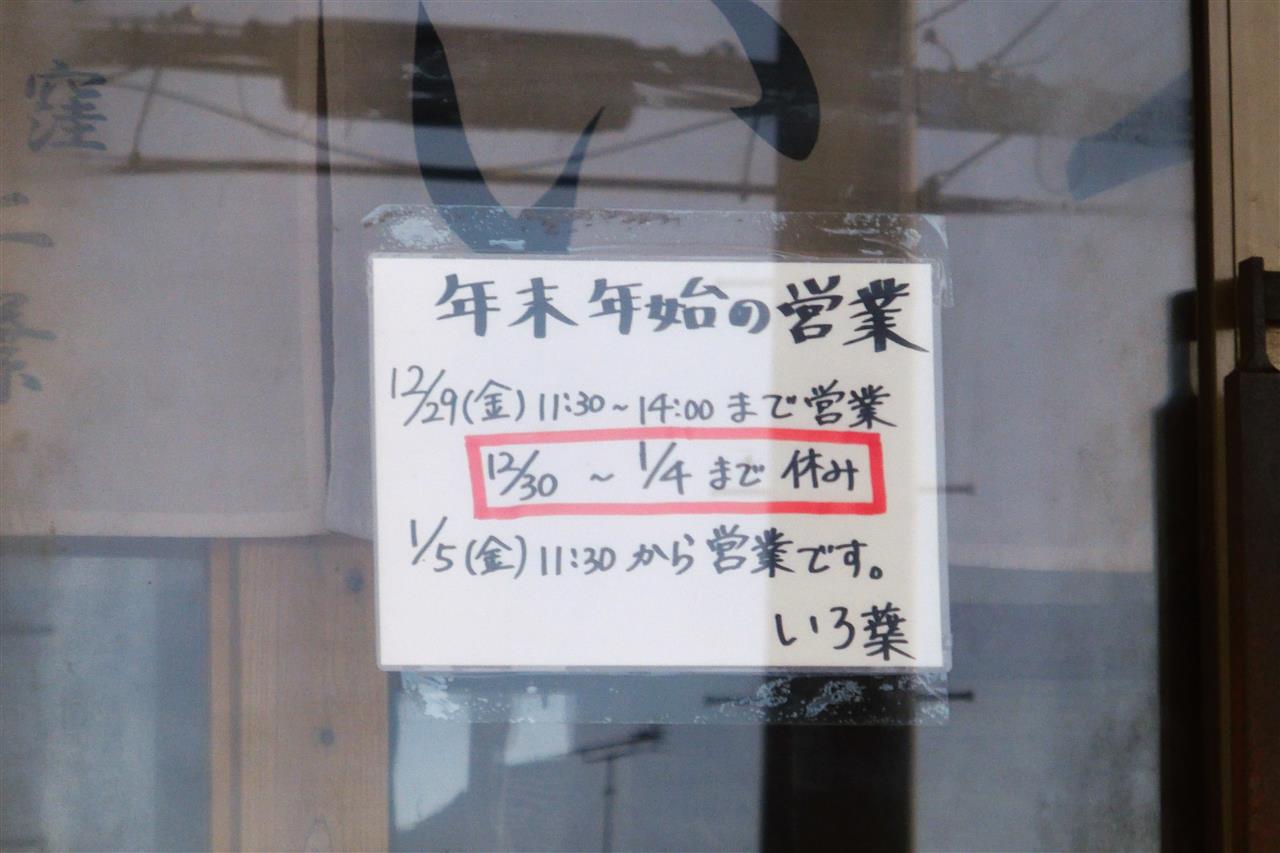 年末年始の営業
12/29(金) 11:30~14:00まで営業
12/30 ~ 1/4まで 休み
1/5(金) 11:30から営業です。
いろ葉
い
窪